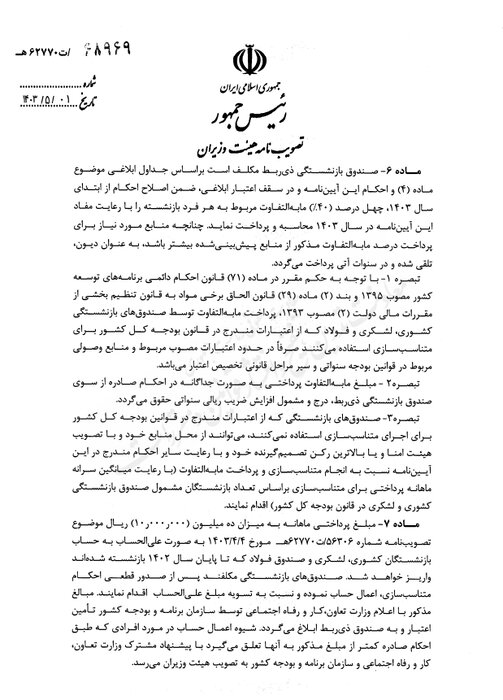 ۶۸۹۶۹/ت۶۲۷۷۰هـ
شماره
تاریخ ۱۴۰۳/۵/۰۱
جمهوری اسلامی ایران
رئیس جمهور
تصویب نامه هیئت وزیران
ماده ۶- صندوق بازنشستگی ذی‌ربط مکلف است براساس جداول ابلاغی موضوع
ماده (۴) و احکام این آیین‌نامه و در سقف اعتبار ابلاغی، ضمن اصلاح احکام از ابتدای
سال ۱۴۰۳، چهل درصد (۴۰٪) مابه‌التفاوت مربوط به هر فرد بازنشسته را با رعایت مفاد
این آیین‌نامه در سال ۱۴۰۳ محاسبه و پرداخت نماید. چنانچه منابع مورد نیاز برای
پرداخت درصد مابه‌التفاوت مذکور از منابع پیش‌بینی‌شده بیشتر باشد، به عنوان دیون،
تلقی شده و در سنوات آتی پرداخت می‌گردد.
تبصره ۱- با توجه به حکم مقرر در ماده (۷۱) قانون احکام دائمی برنامه‌های توسعه
کشور مصوب ۱۳۹۵ و بند (۲) ماده (۲۹) قانون الحاق برخی مواد به قانون تنظیم بخشی از
مقررات مالی دولت (۲) مصوب ۱۳۹۳، پرداخت مابه‌التفاوت توسط صندوق‌های بازنشستگی
کشوری، لشکری و فولاد که از اعتبارات مندرج در قانون بودجه کل کشور برای
متناسب‌سازی استفاده می‌کنند صرفاً در حدود اعتبارات مصوب مربوط و منابع وصولی
مربوط در قوانین بودجه سنواتی و سیر مراحل قانونی تخصیص اعتبار می‌باشد.
تبصره۲- مبلغ مابه‌التفاوت پرداختی به صورت جداگانه در احکام صادره از سوی
صندوق بازنشستگی ذی‌ربط، درج و مشمول افزایش ضریب ریالی سنواتی حقوق می‌گردد.
تبصره۳- صندوق‌های بازنشستگی که از اعتبارات مندرج در قوانین بودجه کل کشور
برای اجرای متناسب‌سازی استفاده نمی‌کنند، می‌توانند از محل منابع خود و با تصویب
هیئت امنا و یا بالاترین رکن تصمیم‌گیرنده خود و با رعایت سایر احکام مندرج در این
آیین‌نامه نسبت به انجام متناسب‌سازی و پرداخت مابه‌التفاوت (با رعایت میانگین سرانه
ماهانه پرداختی برای متناسب‌سازی براساس تعداد بازنشستگان مشمول صندوق بازنشستگی
کشوری و لشکری در قانون بودجه کل کشور) اقدام نمایند.
ماده ۷- مبلغ پرداختی ماهانه به میزان ده میلیون (۱۰٫۰۰۰٫۰۰۰) ریال موضوع
تصویب‌نامه شماره ۵۶۳۰۶/ت۶۲۷۷۰هـ مورخ ۱۴۰۳/۴/۴ به صورت علی‌الحساب به حساب
بازنشستگان کشوری، لشکری و صندوق فولاد که تا پایان سال ۱۴۰۲ بازنشسته شده‌اند
واریز خواهد شد. صندوق‌های بازنشستگی مکلفند پس از صدور قطعی احکام
متناسب‌سازی، اعمال حساب نموده و نسبت به تسویه مبلغ علی‌الحساب اقدام نمایند. مبالغ
مذکور با اعلام وزارت تعاون،کار و رفاه اجتماعی توسط سازمان برنامه و بودجه کشور تأمین
اعتبار و به صندوق ذی‌ربط ابلاغ می‌گردد. شیوه اعمال حساب در مورد افرادی که طبق
احکام صادره کمتر از مبلغ مذکور به آنها تعلق می‌گیرد با پیشنهاد مشترک وزارت تعاون،
کار و رفاه اجتماعی و سازمان برنامه و بودجه کشور به تصویب هیئت وزیران می‌رسد.